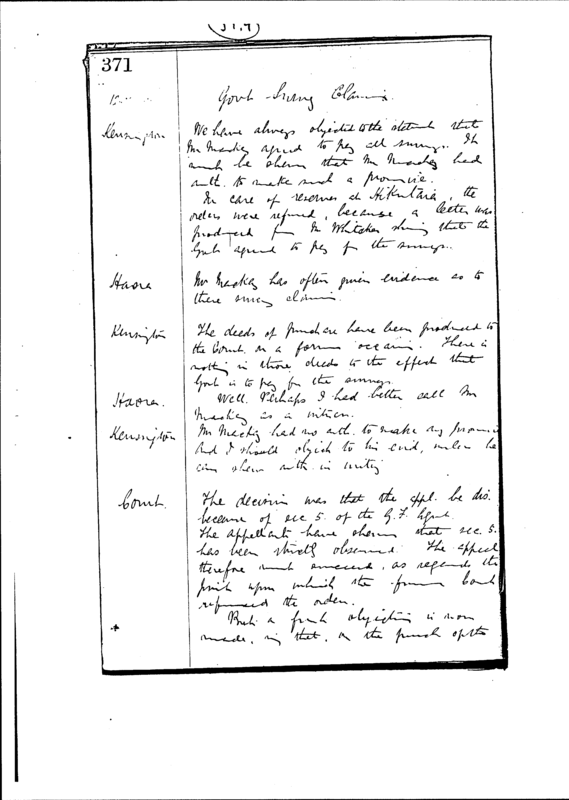 371
Govt Survey Claims.
Kensington
We have always objected to the statemt that
Mr Mackay agreed to pay all surveys. It
must be shewn that Mr Mackay had
auth. to make such a promise.
In case of reserves at Hikutaia, the
orders were refused, because a letter was
produced fm Mr Whitaker shewing that the
Govt agreed to pay for the surveys.
Haora
Mr Mackay has often given evidence as to
these survey claims.
Kensington
The deeds of purchase have been produced to
the Court on a former occasion. There is
nothing in those deeds to the effect that
Govt is to pay for the surveys.
Haora.
Well. Perhaps I had better call Mr
Mackay as a witness.
Kensington
Mr Mackay had no auth. to make any promise
and I should object to his evid, unless he
can shew auth. in writing
Court.
The decision was that the appl. be dis.
because of sec 5. of the
The appellants have shewn that sec. 5.
has been strictly observed. The appeal
therefore must succeed, as regards the
point upon which the former Court
refused the orden.
But a fresh objection is now
made, in that, on the part of the